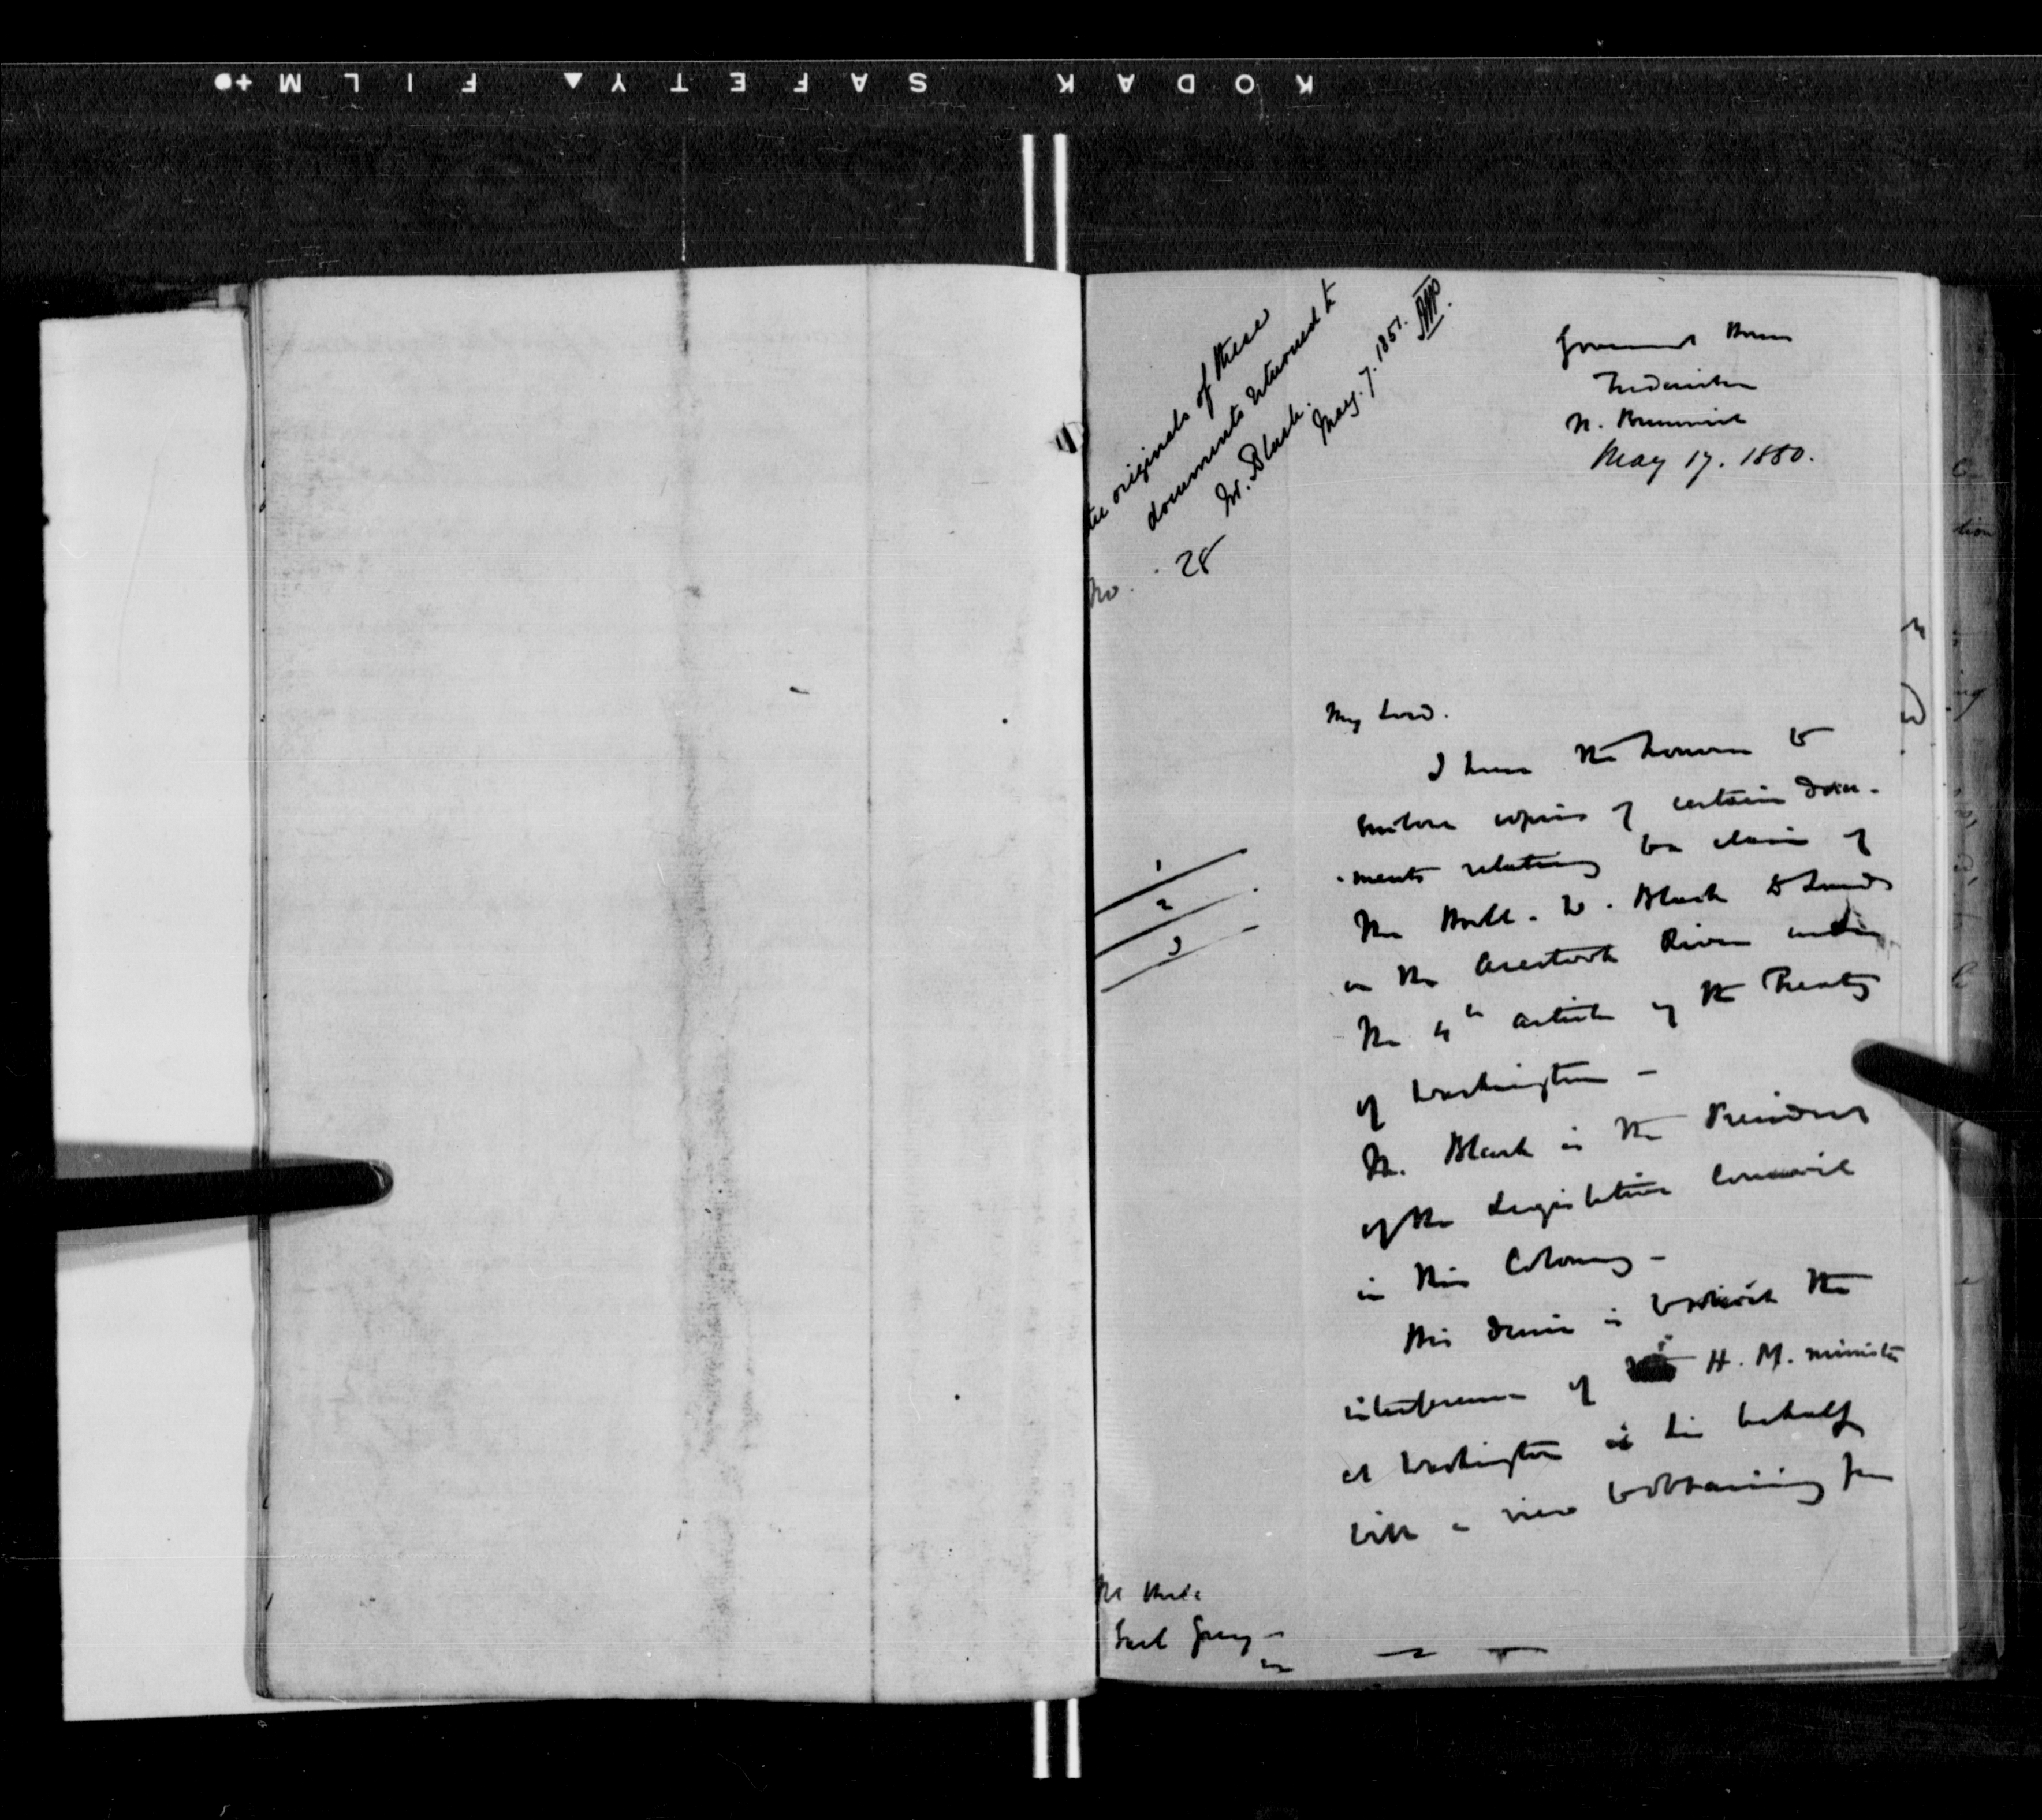 KODAK SAFETY FILM
the originals of these
documents returned to
Mr. Black. May. 7. 1851.
No. 28
Government House
Fredericton
N. Brunswick
May 17. 1850.
My Lord.
I have the honour to
enclose copies of certain docu-
-ments relating to a claim of
The Honble. W. Black to Lands
on the Aroostook River under
the 4th article of the Treaty
of Washington -
Mr. Black is the President
of the Legislative Council
in this Colony -
His desire is to solicit the
interference of H. M. minister
at Washington in his behalf
with a view to obtaining from
1
2
3
Earl Grey -